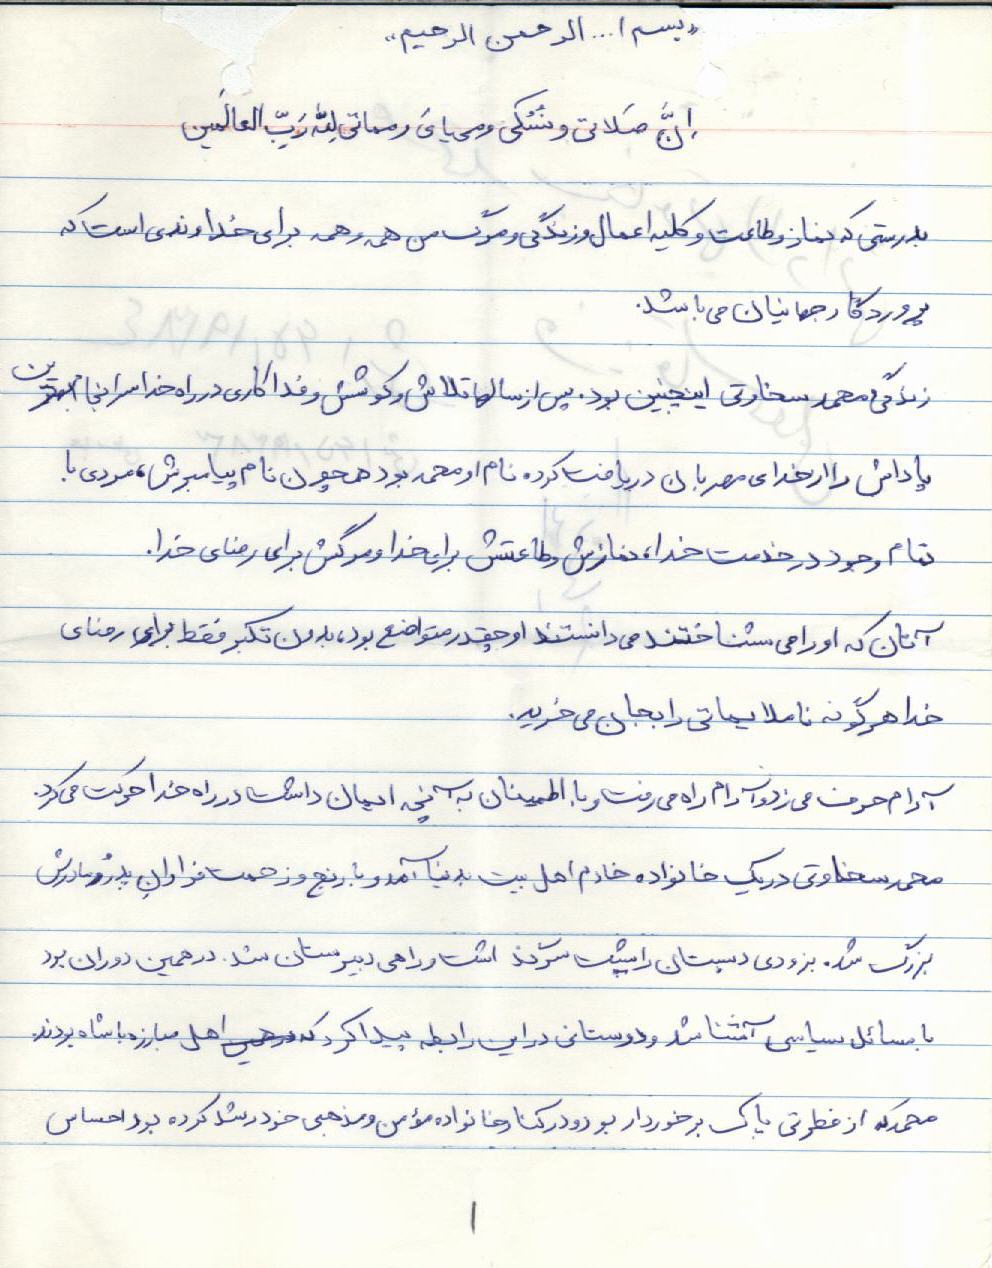 «بسم ا... الرحمن الرحیم»
اِنَّ صَلاتی و نُسُکی و محیایَ و مماتی لِلّه رَبِّ العالَمین
بدرستی که نماز و طاعت و کلیه اعمال و زندگی و مرگ من همه و همه برای خداوندی است که
پروردگار جهانیان می باشد.
زندگی محمد سخاوتی اینچنین بود. پس از سالها تلاش و کوشش و فداکاری در راه خدا سرانجام بهترین
پاداش را از خدای مهربان دریافت کرد. نام او محمد بود همچون نام پیامبرش، مردی با
تمام وجود در خدمت خدا، نمازش و طاعتش برای خدا و مرگش برای رضای خدا.
آنان که او را می شناختند می دانستند او چقدر متواضع بود، بدون تکبر فقط برای رضای
خدا هرگونه ناملایماتی را بجان می خرید.
آرام حرف می زد و آرام راه می رفت و با اطمینان به آنچه ایمان داشت در راه خدا حرکت می کرد.
محمد سخاوتی در یک خانواده خادم اهل بیت بدنیا آمد و با رنج و زحمت فراوان پدر و مادرش
بزرگ شد. بزودی دبستان را پشت سر گذاشت و راهی دبیرستان شد. در همین دوران بود
با مسائل سیاسی آشنا شد و دوستانی در این رابطه پیدا کرد که اهل مبارزه با شاه بودند.
محمد که از فطرتی پاک برخوردار بود و در کنار خانواده مؤمن و مذهبی خود رشد کرده بود احساس
۱